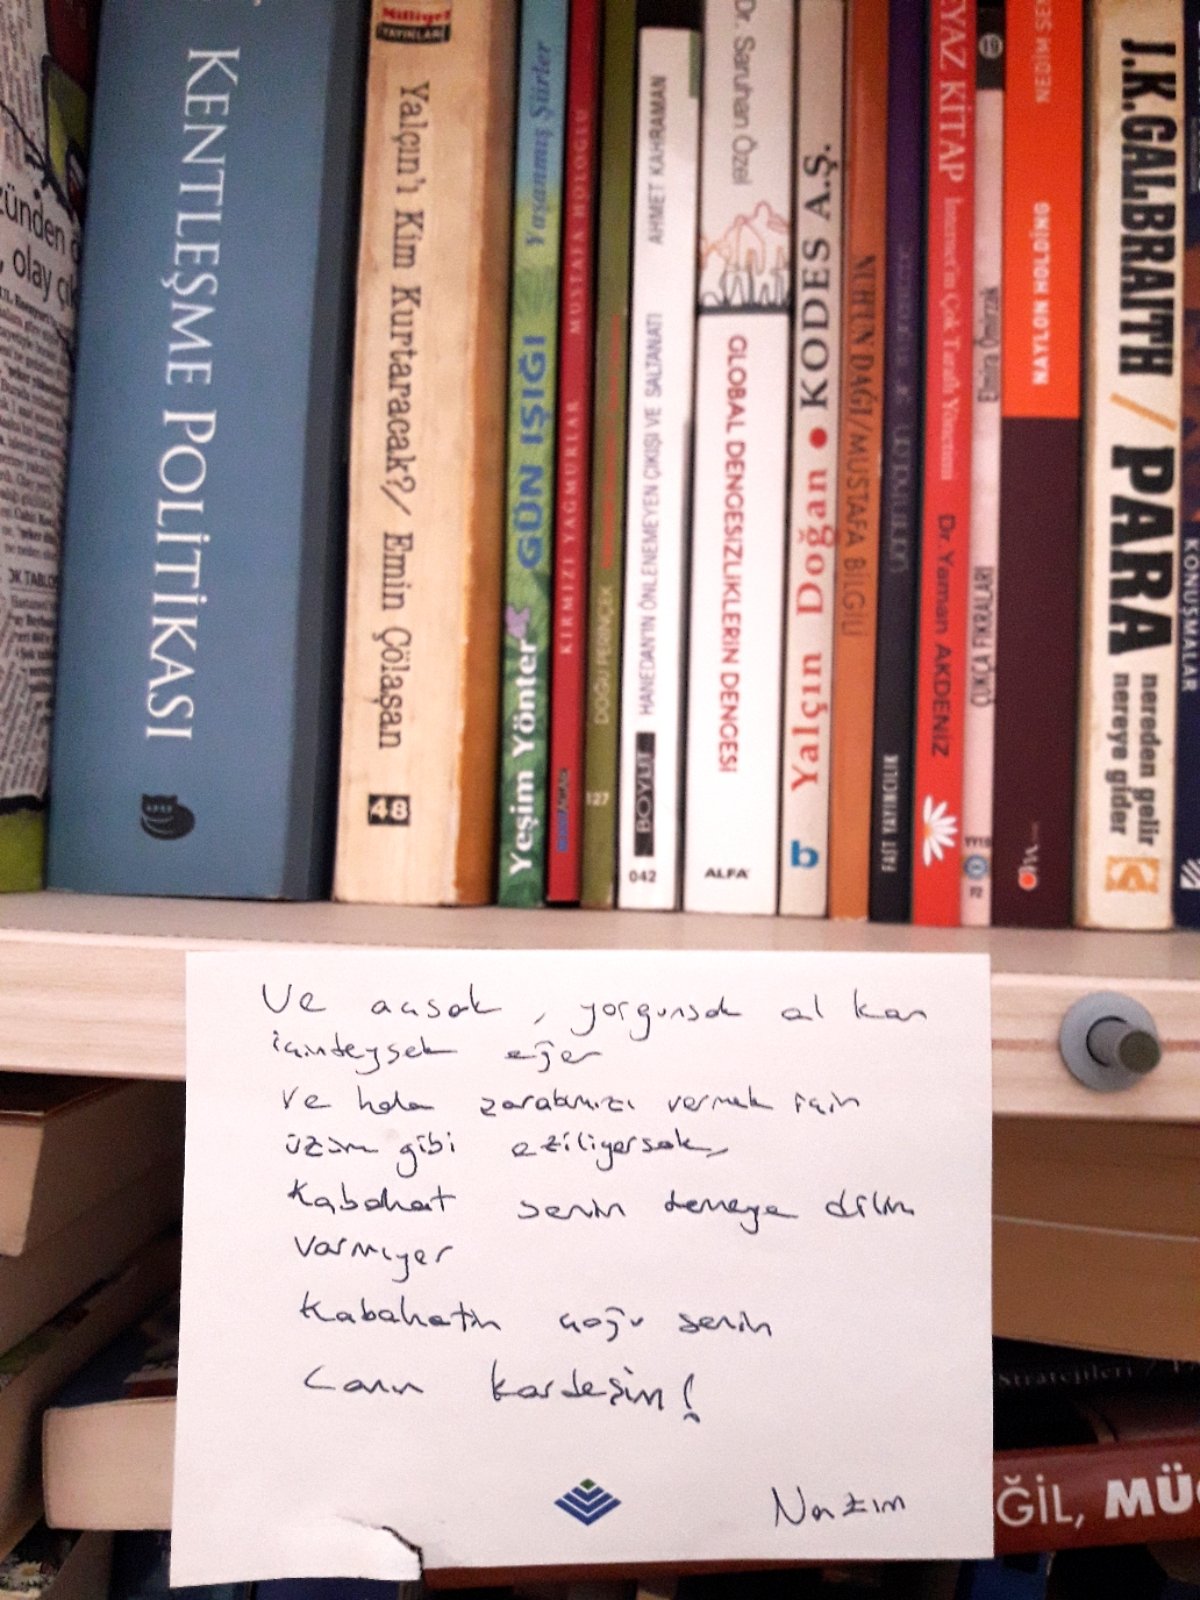 zünden
, olay çık
KENTLEŞME POLİTİKASI
Milliyet
YAYINLARI
Yalçın'ı Kim Kurtaracak?/ Emin Çölaşan
48
Yeşim Yönter GÜN IŞIĞI Yaşanmış Şiirler
KIRMIZI YAĞMURLAR MUSTAFA HOLOĞLU
127 DOĞU PERİNÇEK
042 BOYUT HANEDAN'IN ÖNLENEMEYEN ÇIKIŞI VE SALTANATI AHMET KAHRAMAN
Dr. Saruhan Özel
GLOBAL DENGESİZLİKLERİN DENGESİ
ALFA
Yalçın Doğan • KODES A.Ş.
NUH'UN DAĞI/MUSTAFA BİLGİLİ
FAST YAYINCILIK
YAZ KİTAP İnternet'in Çok Taraflı Yönetimi Dr. Yaman AKDENİZ
19
FIKRALARI
72
NEDİM ŞE
NAYLON HOLDİNG
om
J.K.GALBRAITH / PARA nereden gelir
nereye gider
KONUŞMALAR
Ve açsak, yorgunsak al kan
içindeysek eğer
ve hala şarabımızı vermek için
üzüm gibi eziliyorsak,
Kabahat senin demeye dilim
varmıyor
Kabahatin çoğu senin
Canın kardeşim!
Nazım
Stratejileri /
ĞİL, MÜ